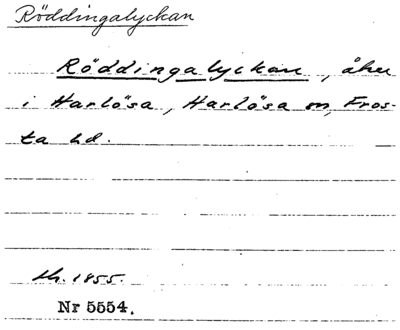 Röddingalyckan
Röddingalyckan, åker
i Harlösa, Harlösa sn, Fros-
ta hd.
1855.
Nr 5554.